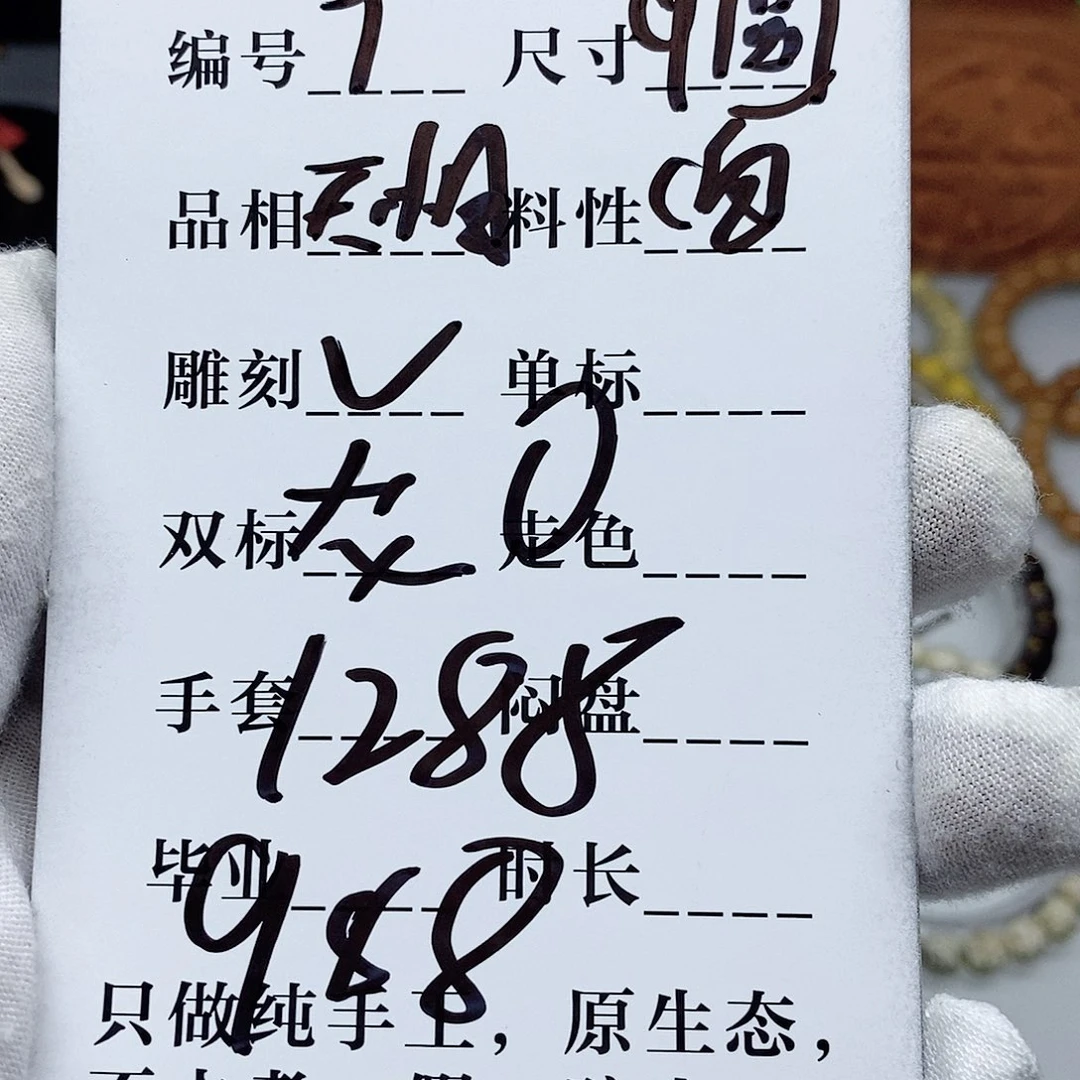 编号 7 尺寸 9圆
品相 料性
雕刻 √ 单标
双标 走色
手套 1288 闷盘
毕业 988 时长
只做纯手工，原生态，